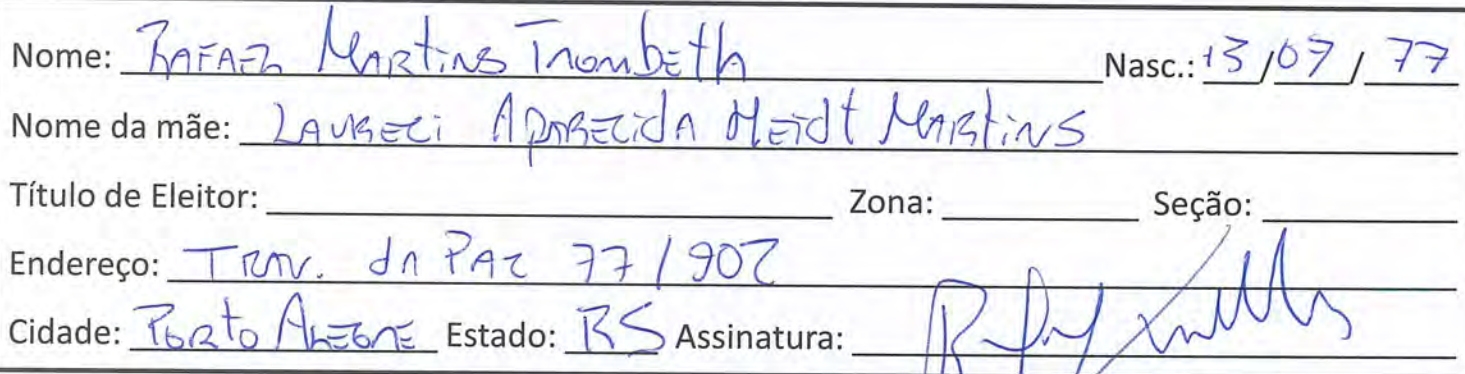 Nome: RAFAEL MARtiNS TRombEttA Nasc.: 13/07/77
Nome da mãe: LAURECi APARECidA HEidt MARtiNS
Título de Eleitor: Zona: Seção:
Endereço: TRAV. dA PAZ 77/902
Cidade: PoRto ALEGRE Estado: RS Assinatura: